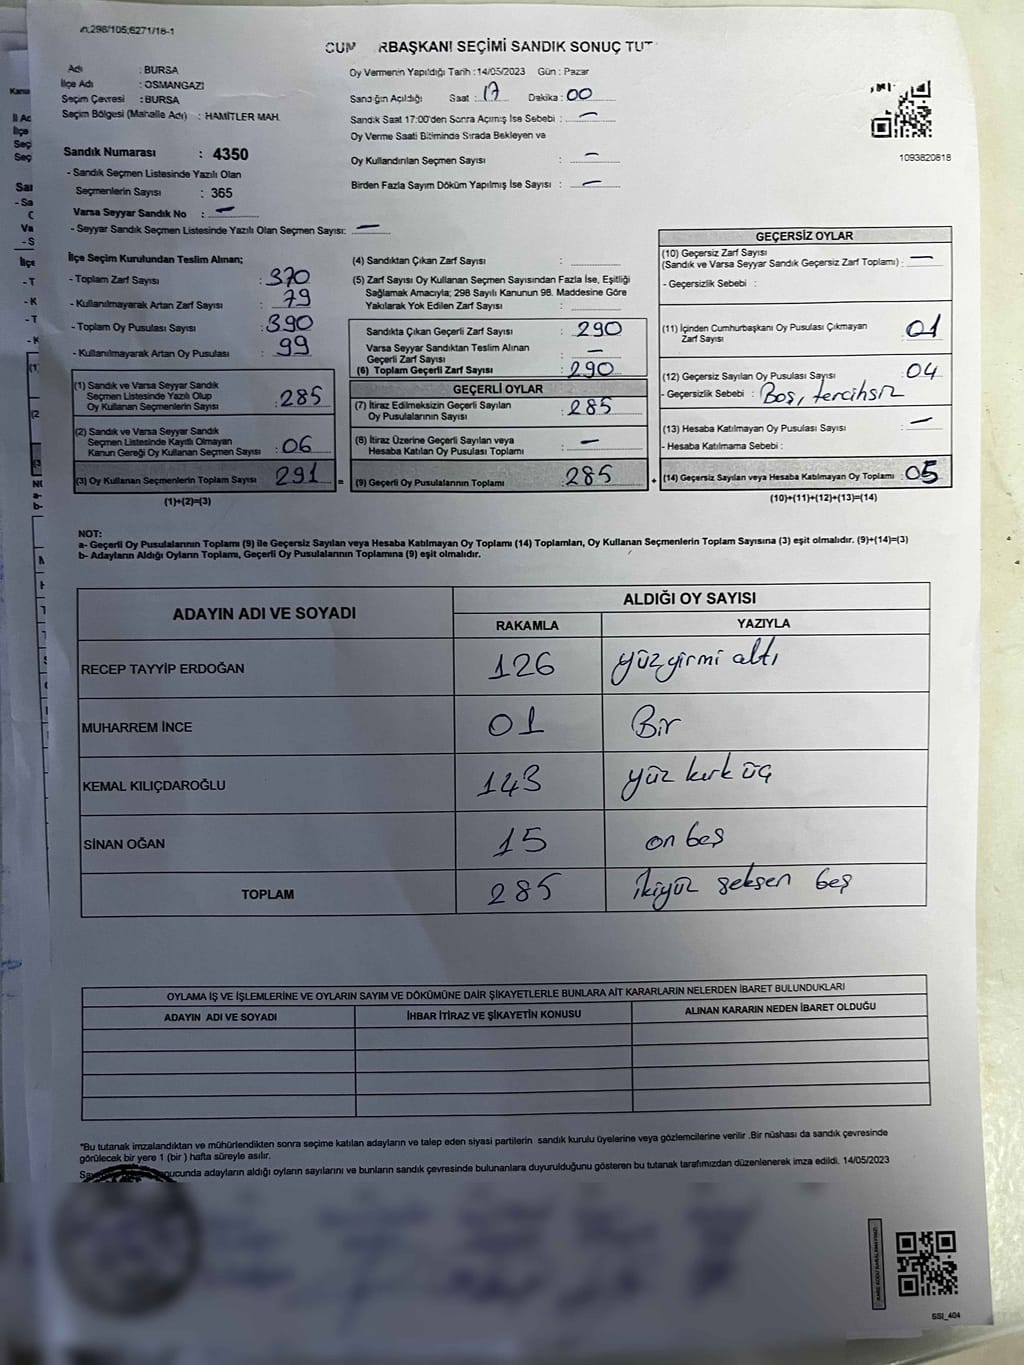 n;298/105;6271/16-1
CUM RBAŞKANI SEÇİMİ SANDIK SONUÇ TUT
Adı : BURSA
İlçe Adı : OSMANGAZİ
Seçim Çevresi : BURSA
Seçim Bölgesi (Mahalle Adı) : HAMİTLER MAH.
Sandık Numarası : 4350
- Sandık Seçmen Listesinde Yazılı Olan
Seçmenlerin Sayısı : 365
Varsa Seyyar Sandık No : —
- Seyyar Sandık Seçmen Listesinde Yazılı Olan Seçmen Sayısı: —
Oy Vermenin Yapıldığı Tarih :14/05/2023 Gün : Pazar
Sandığın Açıldığı Saat : 17 Dakika : 00
Sandık Saat 17:00'den Sonra Açılmış İse Sebebi : —
Oy Verme Saati Bitiminde Sırada Bekleyen ve
Oy Kullandırılan Seçmen Sayısı : —
Birden Fazla Sayım Döküm Yapılmış İse Sayısı : —
1093820818
İlçe Seçim Kurulundan Teslim Alınan;
- Toplam Zarf Sayısı : 370
- Kullanılmayarak Artan Zarf Sayısı : 79
- Toplam Oy Pusulası Sayısı : 390
- Kullanılmayarak Artan Oy Pusulası : 99
(1) Sandık ve Varsa Seyyar Sandık
Seçmen Listesinde Yazılı Olup
Oy Kullanan Seçmenlerin Sayısı : 285
(2) Sandık ve Varsa Seyyar Sandık
Seçmen Listesinde Kayıtlı Olmayan
Kanun Gereği Oy Kullanan Seçmen Sayısı : 06
(3) Oy Kullanan Seçmenlerin Toplam Sayısı : 291
(1)+(2)=(3)
(4) Sandıktan Çıkan Zarf Sayısı :
(5) Zarf Sayısı Oy Kullanan Seçmen Sayısından Fazla İse, Eşitliği
Sağlamak Amacıyla; 298 Sayılı Kanunun 98. Maddesine Göre
Yakılarak Yok Edilen Zarf Sayısı :
Sandıkta Çıkan Geçerli Zarf Sayısı : 290
Varsa Seyyar Sandıktan Teslim Alınan
Geçerli Zarf Sayısı : —
(6) Toplam Geçerli Zarf Sayısı : 290
GEÇERLİ OYLAR
(7) İtiraz Edilmeksizin Geçerli Sayılan
Oy Pusulalarının Sayısı : 285
(8) İtiraz Üzerine Geçerli Sayılan veya
Hesaba Katılan Oy Pusulası Toplamı : —
= (9) Geçerli Oy Pusulalarının Toplamı : 285
GEÇERSİZ OYLAR
(10) Geçersiz Zarf Sayısı
(Sandık ve Varsa Seyyar Sandık Geçersiz Zarf Toplamı) : —
- Geçersizlik Sebebi :
(11) İçinden Cumhurbaşkanı Oy Pusulası Çıkmayan
Zarf Sayısı : 01
(12) Geçersiz Sayılan Oy Pusulası Sayısı : 04
- Geçersizlik Sebebi : Boş, tercihsiz
(13) Hesaba Katılmayan Oy Pusulası Sayısı : —
- Hesaba Katılmama Sebebi :
+ (14) Geçersiz Sayılan veya Hesaba Katılmayan Oy Toplamı : 05
(10)+(11)+(12)+(13)=(14)
NOT:
a- Geçerli Oy Pusulalarının Toplamı (9) ile Geçersiz Sayılan veya Hesaba Katılmayan Oy Toplamı (14) Toplamları, Oy Kullanan Seçmenlerin Toplam Sayısına (3) eşit olmalıdır. (9)+(14)=(3)
b- Adayların Aldığı Oyların Toplamı, Geçerli Oy Pusulalarının Toplamına (9) eşit olmalıdır.
ADAYIN ADI VE SOYADI ALDIĞI OY SAYISI
RAKAMLA YAZIYLA
RECEP TAYYİP ERDOĞAN 126 yüzyirmi altı
MUHARREM İNCE 01 Bir
KEMAL KILIÇDAROĞLU 143 yüz kırk üç
SİNAN OĞAN 15 on beş
TOPLAM 285 İkiyüz seksen beş
OYLAMA İŞ VE İŞLEMLERİNE VE OYLARIN SAYIM VE DÖKÜMÜNE DAİR ŞİKAYETLERLE BUNLARA AİT KARARLARIN NELERDEN İBARET BULUNDUKLARI
ADAYIN ADI VE SOYADI İHBAR İTİRAZ VE ŞİKAYETİN KONUSU ALINAN KARARIN NEDEN İBARET OLDUĞU
"Bu tutanak imzalandıktan ve mühürlendikten sonra seçime katılan adayların ve talep eden siyasi partilerin sandık kurulu üyelerine veya gözlemcilerine verilir .Bir nüshası da sandık çevresinde
görülecek bir yere 1 (bir ) hafta süreyle asılır.
ucunda adayların aldığı oyların sayılarını ve bunların sandık çevresinde bulunanlara duyurulduğunu gösteren bu tutanak tarafımızdan düzenlenerek imza edildi. 14/05/2023
SSI_404